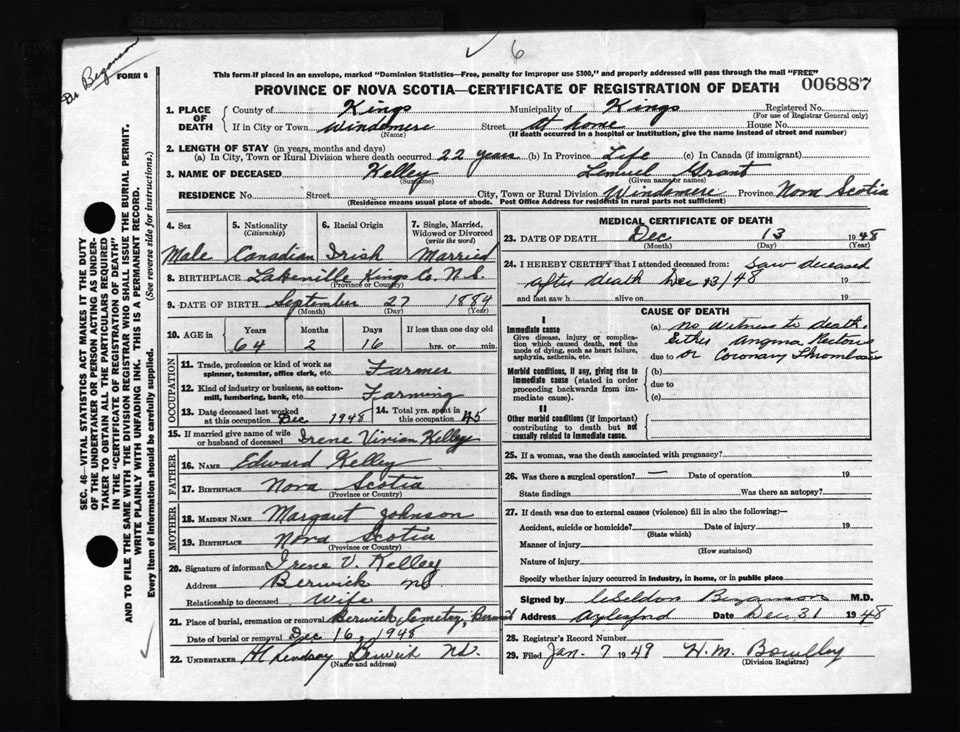 6
Dr Bezanson
FORM 6
This form if placed in an envelope, marked "Dominion Statistics—Free, penalty for improper use $300," and properly addressed will pass through the mail "FREE"
PROVINCE OF NOVA SCOTIA—CERTIFICATE OF REGISTRATION OF DEATH
006887
1. PLACE OF DEATH County of Kings Municipality of Kings Registered No.
(For use of Registrar General only)
If in City or Town Windemere Street at home House No.
(Name) (If death occurred in a hospital or institution, give the name instead of street and number)
2. LENGTH OF STAY (in years, months and days)
(a) In City, Town or Rural Division where death occurred 22 years (b) In Province Life (c) In Canada (if immigrant)
3. NAME OF DECEASED Kelley Lemuel Grant
(Surname) (Given name or names)
RESIDENCE No. Street City, Town or Rural Division Windemere Province Nova Scotia
(Residence means usual place of abode. Post Office Address for residents in rural parts not sufficient)
4. Sex 5. Nationality (Citizenship) 6. Racial Origin 7. Single, Married, Widowed or Divorced (write the word)
Male Canadian Irish Married
8. BIRTHPLACE Lakeville Kings Co. N.S.
(Province or Country)
9. DATE OF BIRTH September 27 1884
(Month) (Day) (Year)
10. AGE in Years Months Days If less than one day old
64 2 16 hrs. or min.
OCCUPATION
11. Trade, profession or kind of work as spinner, teamster, office clerk, etc. Farmer
12. Kind of industry or business, as cotton-mill, lumbering, bank, etc. Farming
13. Date deceased last worked at this occupation Dec 1948 14. Total yrs. spent in this occupation 45
15. If married give name of wife or husband of deceased Irene Vivian Kelley
FATHER
16. NAME Edward Kelley
17. BIRTHPLACE Nova Scotia
(Province or Country)
MOTHER
18. MAIDEN NAME Margaret Johnson
19. BIRTHPLACE Nova Scotia
(Province or Country)
20. Signature of informant Irene V. Kelley
Address Berwick NS
Relationship to deceased Wife
21. Place of burial, cremation or removal Berwick Cemetry, Berwick
Date of burial or removal Dec 16, 1948
22. UNDERTAKER Lindsay Berwick NS.
(Name and address)
MEDICAL CERTIFICATE OF DEATH
23. DATE OF DEATH Dec 13 1948
(Month) (Day) (Year)
24. I HEREBY CERTIFY that I attended deceased from: Saw deceased
after death Dec 13/48 19
and last saw h alive on 19
CAUSE OF DEATH
I
Immediate cause
Give disease, injury or complication which caused death, not the mode of dying, such as heart failure, asphyxia, asthenia, etc.
(a) no witness to death.
Either Angina Pectoris
due to or Coronary Thrombosis
Morbid conditions, if any, giving rise to immediate cause (stated in order proceeding backwards from immediate cause).
(b)
due to
(c)
II
Other morbid conditions (if important) contributing to death but not causally related to immediate cause.
25. If a woman, was the death associated with pregnancy?
26. Was there a surgical operation? — Date of operation 19
State findings Was there an autopsy?
27. If death was due to external causes (violence) fill in also the following:—
Accident, suicide or homicide? Date of injury 19
(State which)
Manner of injury
(How sustained)
Nature of injury
Specify whether injury occurred in industry, in home, or in public place
Signed by Bezanson M.D.
Address Aylesford Date Dec 31 1948
28. Registrar's Record Number
29. Filed Jan. 7 1949 H. M.
(Division Registrar)
SEC. 46—VITAL STATISTICS ACT MAKES IT THE DUTY
OF THE UNDERTAKER OR PERSON ACTING AS UNDER-
TAKER TO OBTAIN ALL THE PARTICULARS REQUIRED
IN THE "CERTIFICATE OF REGISTRATION OF DEATH"
AND TO FILE THE SAME WITH THE DIVISION REGISTRAR WHO SHALL ISSUE THE BURIAL PERMIT.
WRITE PLAINLY WITH UNFADING INK. THIS IS A PERMANENT RECORD.
Every item of information should be carefully supplied. (See reverse side for instructions.)